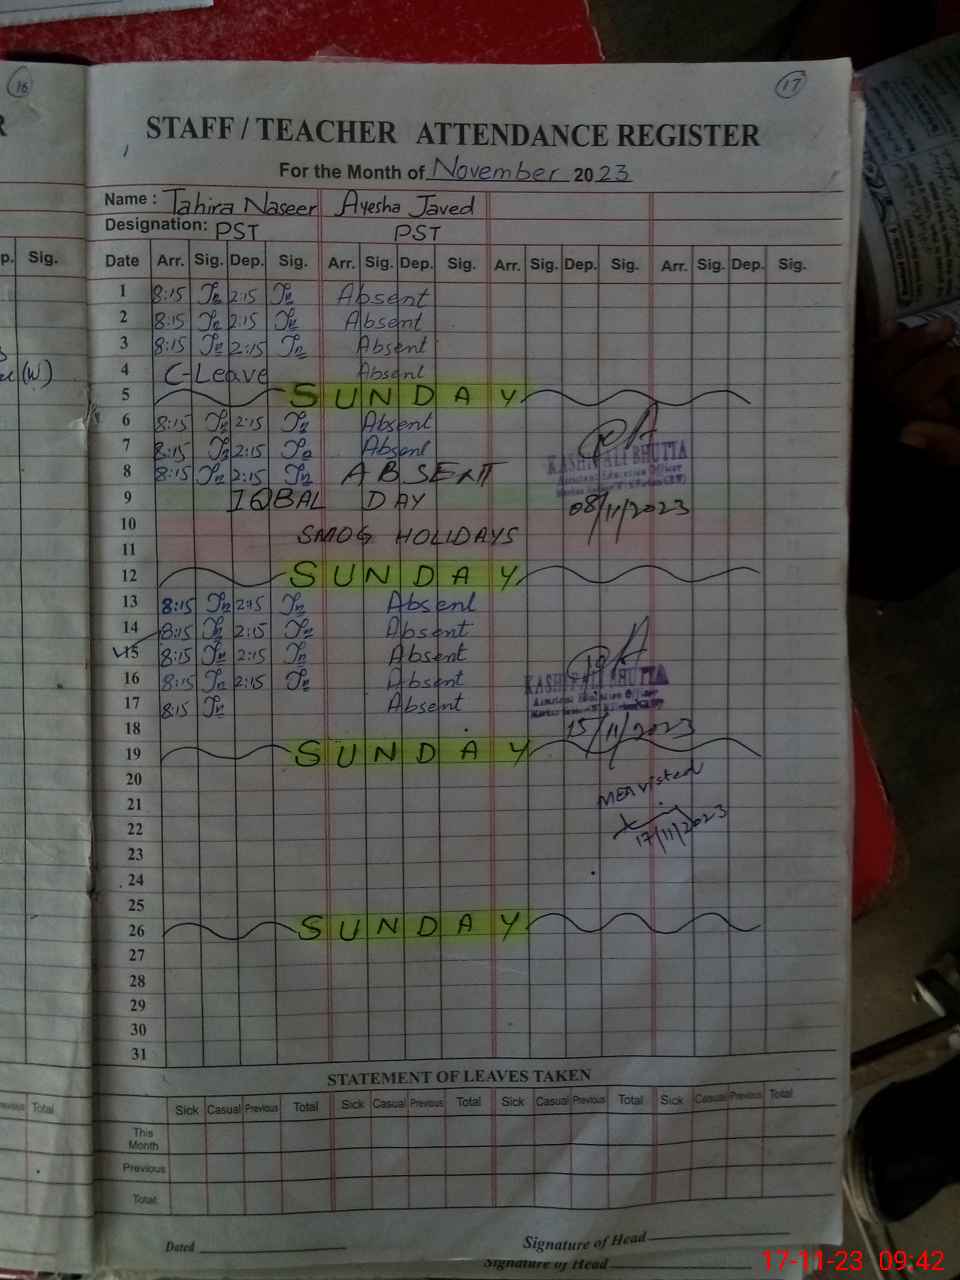 16
17
STAFF / TEACHER ATTENDANCE REGISTER
For the Month of November 20 23
Name : Tahira Naseer Ayesha Javed
Designation: PST PST
p. Sig. Date Arr. Sig. Dep. Sig. Arr. Sig. Dep. Sig. Arr. Sig. Dep. Sig. Arr. Sig. Dep. Sig.
1 8:15 2:15 Absent
2 8:15 2:15 Absent
3 8:15 2:15 Absent
(W) 4 C-Leave Absent
5 SUNDAY
6 8:15 2:15 Absent
7 8:15 2:15 Absent
8 8:15 2:15 ABSENT
KASHIF ALI BHUTTA
Assistant Education Officer
9 IQBAL DAY
08/11/2023
10
SMOG HOLIDAYS
11
12 SUNDAY
13 8:15 2:15 Absent
14 8:15 2:15 Absent
15 8:15 2:15 Absent
16 8:15 2:15 Absent
KASHIF ALI BHUTTA
Assistant Education Officer
17 8:15 Absent
18
15/11/2023
19 SUNDAY
20
MEA visted
21
22
17/11/2023
23
24
25
26 SUNDAY
27
28
29
30
31
STATEMENT OF LEAVES TAKEN
Total Sick Casual Previous Total Sick Casual Previous Total Sick Casual Previous Total Sick Casual Previous Total
This Month
Previous
Total
Dated Signature of Head
Signature of Head
17-11-23 09:42